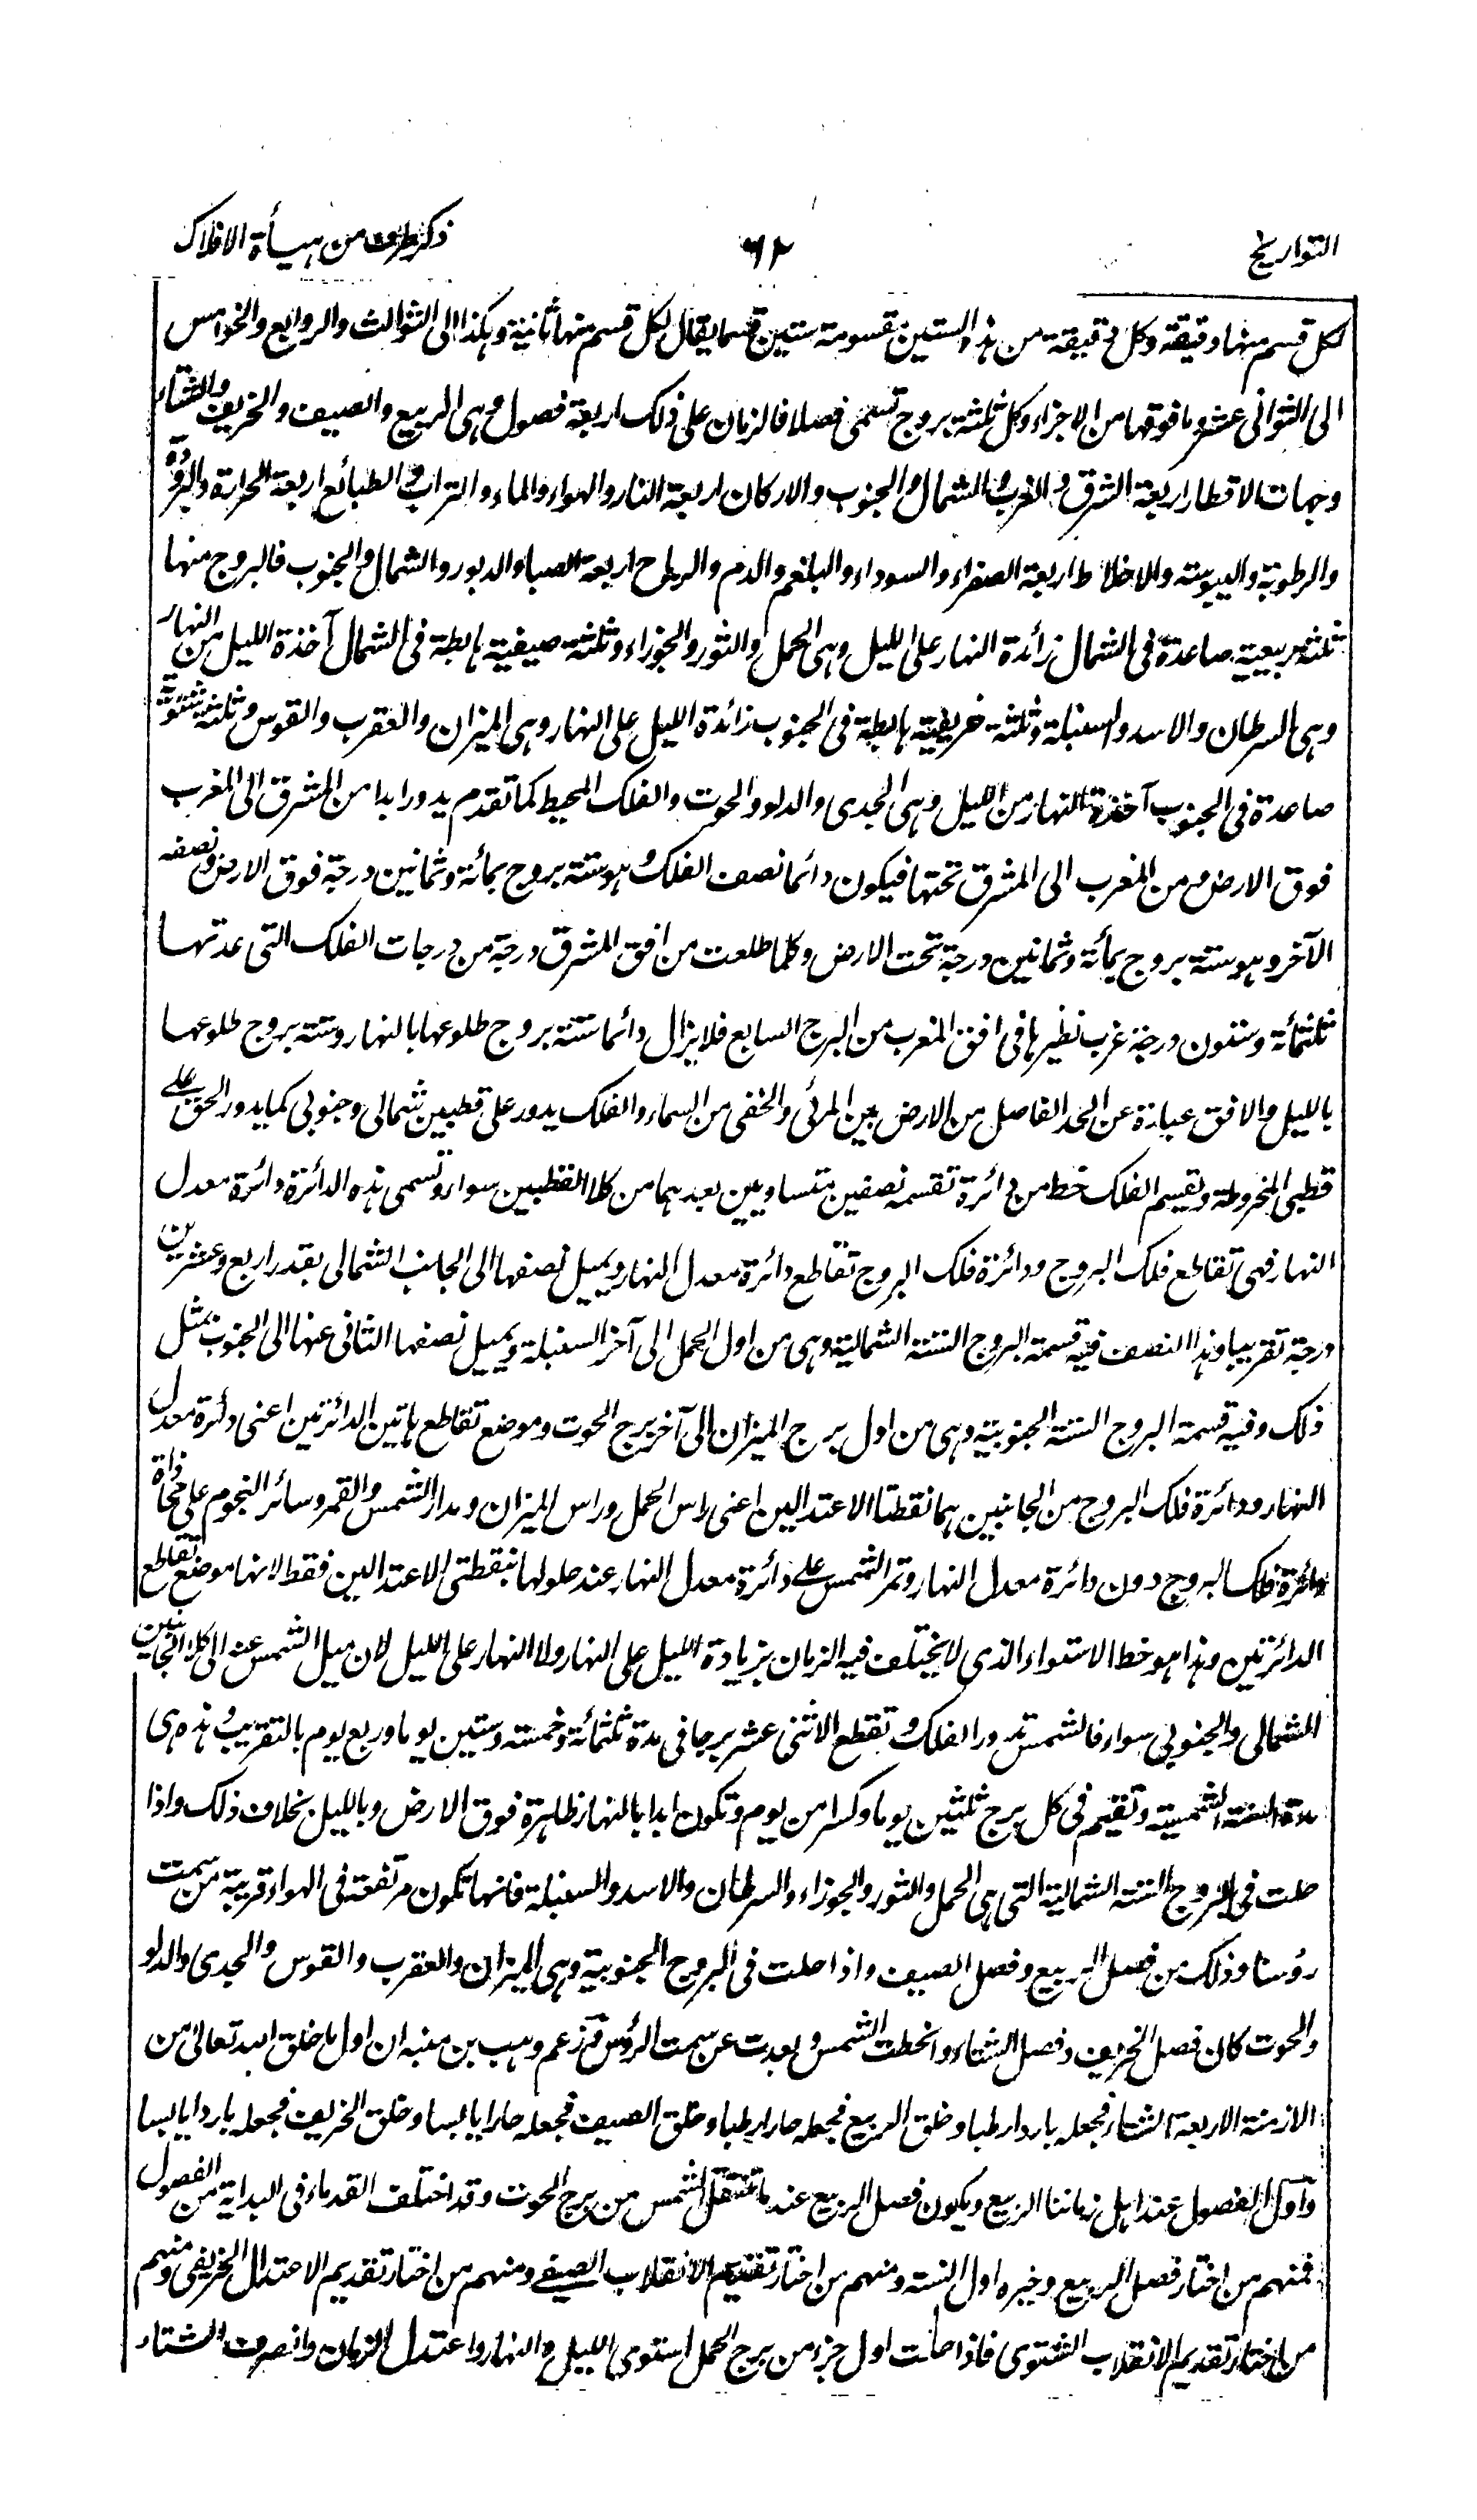 التواريخ ٦٢ ذكر طرف من هيأة الافلاك
لكل قسم منها دقيقة وكل دقيقة من هذه الستين مقسومة ستين قسما يقال لكل قسم منها ثانية وهكذا الى الثوالث والروابع والخوامس
الى الثوانى عشر وما فوقها من الاجزاء وكل ثلثة بروج تسمى فصلا فالزمان على ذلك اربعة فصول وهى الربيع والصيف والخريف والشتاء
وجهات الاقطار اربعة الشرق والغرب والشمال والجنوب والاركان اربعة النار والهواء والماء والتراب والطبائع اربعة الحرارة والبرودة
والرطوبة واليبوسة والاخلاط اربعة الصفراء والسوداء والبلغم والدم والرياح اربعة الصبا والدبور والشمال والجنوب فالبروج منها
ثلثة ربيعية صاعدة فى الشمال زائدة النهار على الليل وهى الحمل والثور والجوزاء وثلثة صيفية هابطة فى الشمال آخذة الليل من النهار
وهى السرطان والاسد والسنبلة وثلثة خريفية هابطة فى الجنوب زائدة الليل على النهار وهى الميزان والعقرب والقوس وثلثة شتوية
صاعدة فى الجنوب آخذة النهار من الليل وهى الجدى والدلو والحوت والفلك المحيط كما تقدم يدور ابدا من المشرق الى المغرب
فوق الارض ومن المغرب الى المشرق تحتها فيكون دائما نصف الفلك وهو ستة بروج بمائة وثمانين درجة فوق الارض ونصفه
الآخر وهو ستة بروج بمائة وثمانين درجة تحت الارض وكلما طلعت من افق المشرق درجة من درجات الفلك التى عدتها
ثلثمائة وستون درجة غرب نظيرها فى افق المغرب من البرج السابع فلا يزال دائما ستة بروج طلوعها بالنهار وستة بروج طلوعها
بالليل والافق عبارة عن الحد الفاصل من الارض بين المرئى والخفى من السماء والفلك يدور على قطبين شمالى وجنوبى كما يدور الحق على
قطبى المخروطة ويقسم الفلك خط من دائرة تقسمه نصفين متساويين بعدهما من كلا القطبين سواء وتسمى هذه الدائرة دائرة معدل
النهار فهى تقاطع فلك البروج ودائرة فلك البروج تقاطع دائرة معدل النهار ويميل نصفها الى الجانب الشمالى بقدر اربع وعشرين
درجة تقريبا وهذا النصف فيه قسمة البروج الستة الشمالية وهى من اول الحمل الى آخر السنبلة ويميل نصفها الثانى عنها الى الجنوب بمثل
ذلك وفيه قسمة البروج الستة الجنوبية وهى من اول برج الميزان الى آخر برج الحوت وموضع تقاطع هاتين الدائرتين اعنى دائرة معدل
النهار ودائرة فلك البروج من الجانبين هما نقطتا الاعتدالين اعنى راس الحمل وراس الميزان ومدار الشمس والقمر وسائر النجوم على محاذاة
دائرة فلك البروج دون دائرة معدل النهار وتمر الشمس على دائرة معدل النهار عند حلولها بنقطتى الاعتدالين فقط لانها موضع تقاطع
الدائرتين وهذا هو خط الاستواء الذى لا يختلف فيه الزمان بزيادة الليل على النهار ولا النهار على الليل لان ميل الشمس عنه الى كلا الجانبين
الشمالى والجنوبى سواء فالشمس تدور الفلك وتقطع الاثنى عشر برجا فى مدة ثلثمائة وخمسة وستين يوما وربع يوم بالتقريب وهذه هى
مدة السنة الشمسية وتقيم فى كل برج ثلثين يوما وكسرا من يوم وتكون ابدا بالنهار ظاهرة فوق الارض وبالليل بخلاف ذلك واذا
حلت فى البروج الستة الشمالية التى هى الحمل والثور والجوزاء والسرطان والاسد والسنبلة فانها تكون مرتفعة فى الهواء قريبة من سمت
رؤسنا وذلك من فصل الربيع وفصل الصيف واذا حلت فى البروج الجنوبية وهى الميزان والعقرب والقوس والجدى والدلو
والحوت كان فصل الخريف وفصل الشتاء وانحطت الشمس وبعدت عن سمت الرؤس وزعم وهب بن منبه ان اول ما خلق الله تعالى من
الازمنة الاربعة الشتاء فجعله باردا رطبا وخلق الربيع فجعله حارا رطبا وخلق الصيف فجعله حارا يابسا وخلق الخريف فجعله باردا يابسا
واول الفصول عند اهل زماننا الربيع ويكون فصل الربيع عند ما تنتقل الشمس من برج الحوت وقد اختلف القدماء فى البداية من الفصول
فمنهم من اختار فصل الربيع وخيره اول السنة ومنهم من اختار تقديم الانقلاب الصيفى ومنهم من اختار تقديم الاعتدال الخريفى ومنهم
من اختار تقديم الانقلاب الشتوى فاذا حلت اول جزء من برج الحمل استوى الليل والنهار واعتدل الزمان وانصرف الشتاء